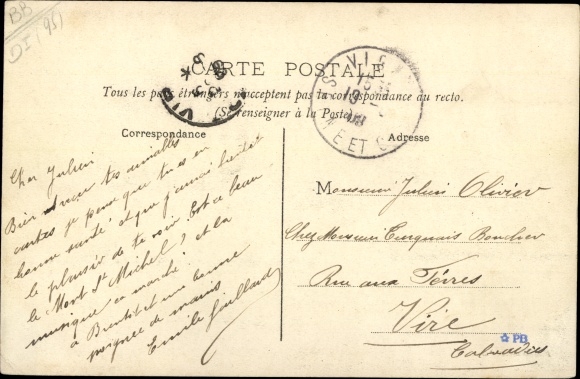 BB
CARTE POSTALE
Tous les pays étrangers n'acceptent pas la correspondance au recto.
(Se renseigner à la Poste)
Correspondance
Adresse
Cher Julien
Bien reçu tes aimables
cartes je pense que tu es en
bonne santé et que j'aurai bientôt
le plaisir de te voir. Est ce beau
le Mont St Michel? et la
musique ça marche?
à Bientôt et une bonne
poignée de mains
Emile Gaillard
Monsieur Julien Olivier
Chez Monsieur Turquais Boucher
Rue aux Férres
Vire
Calvados
PB